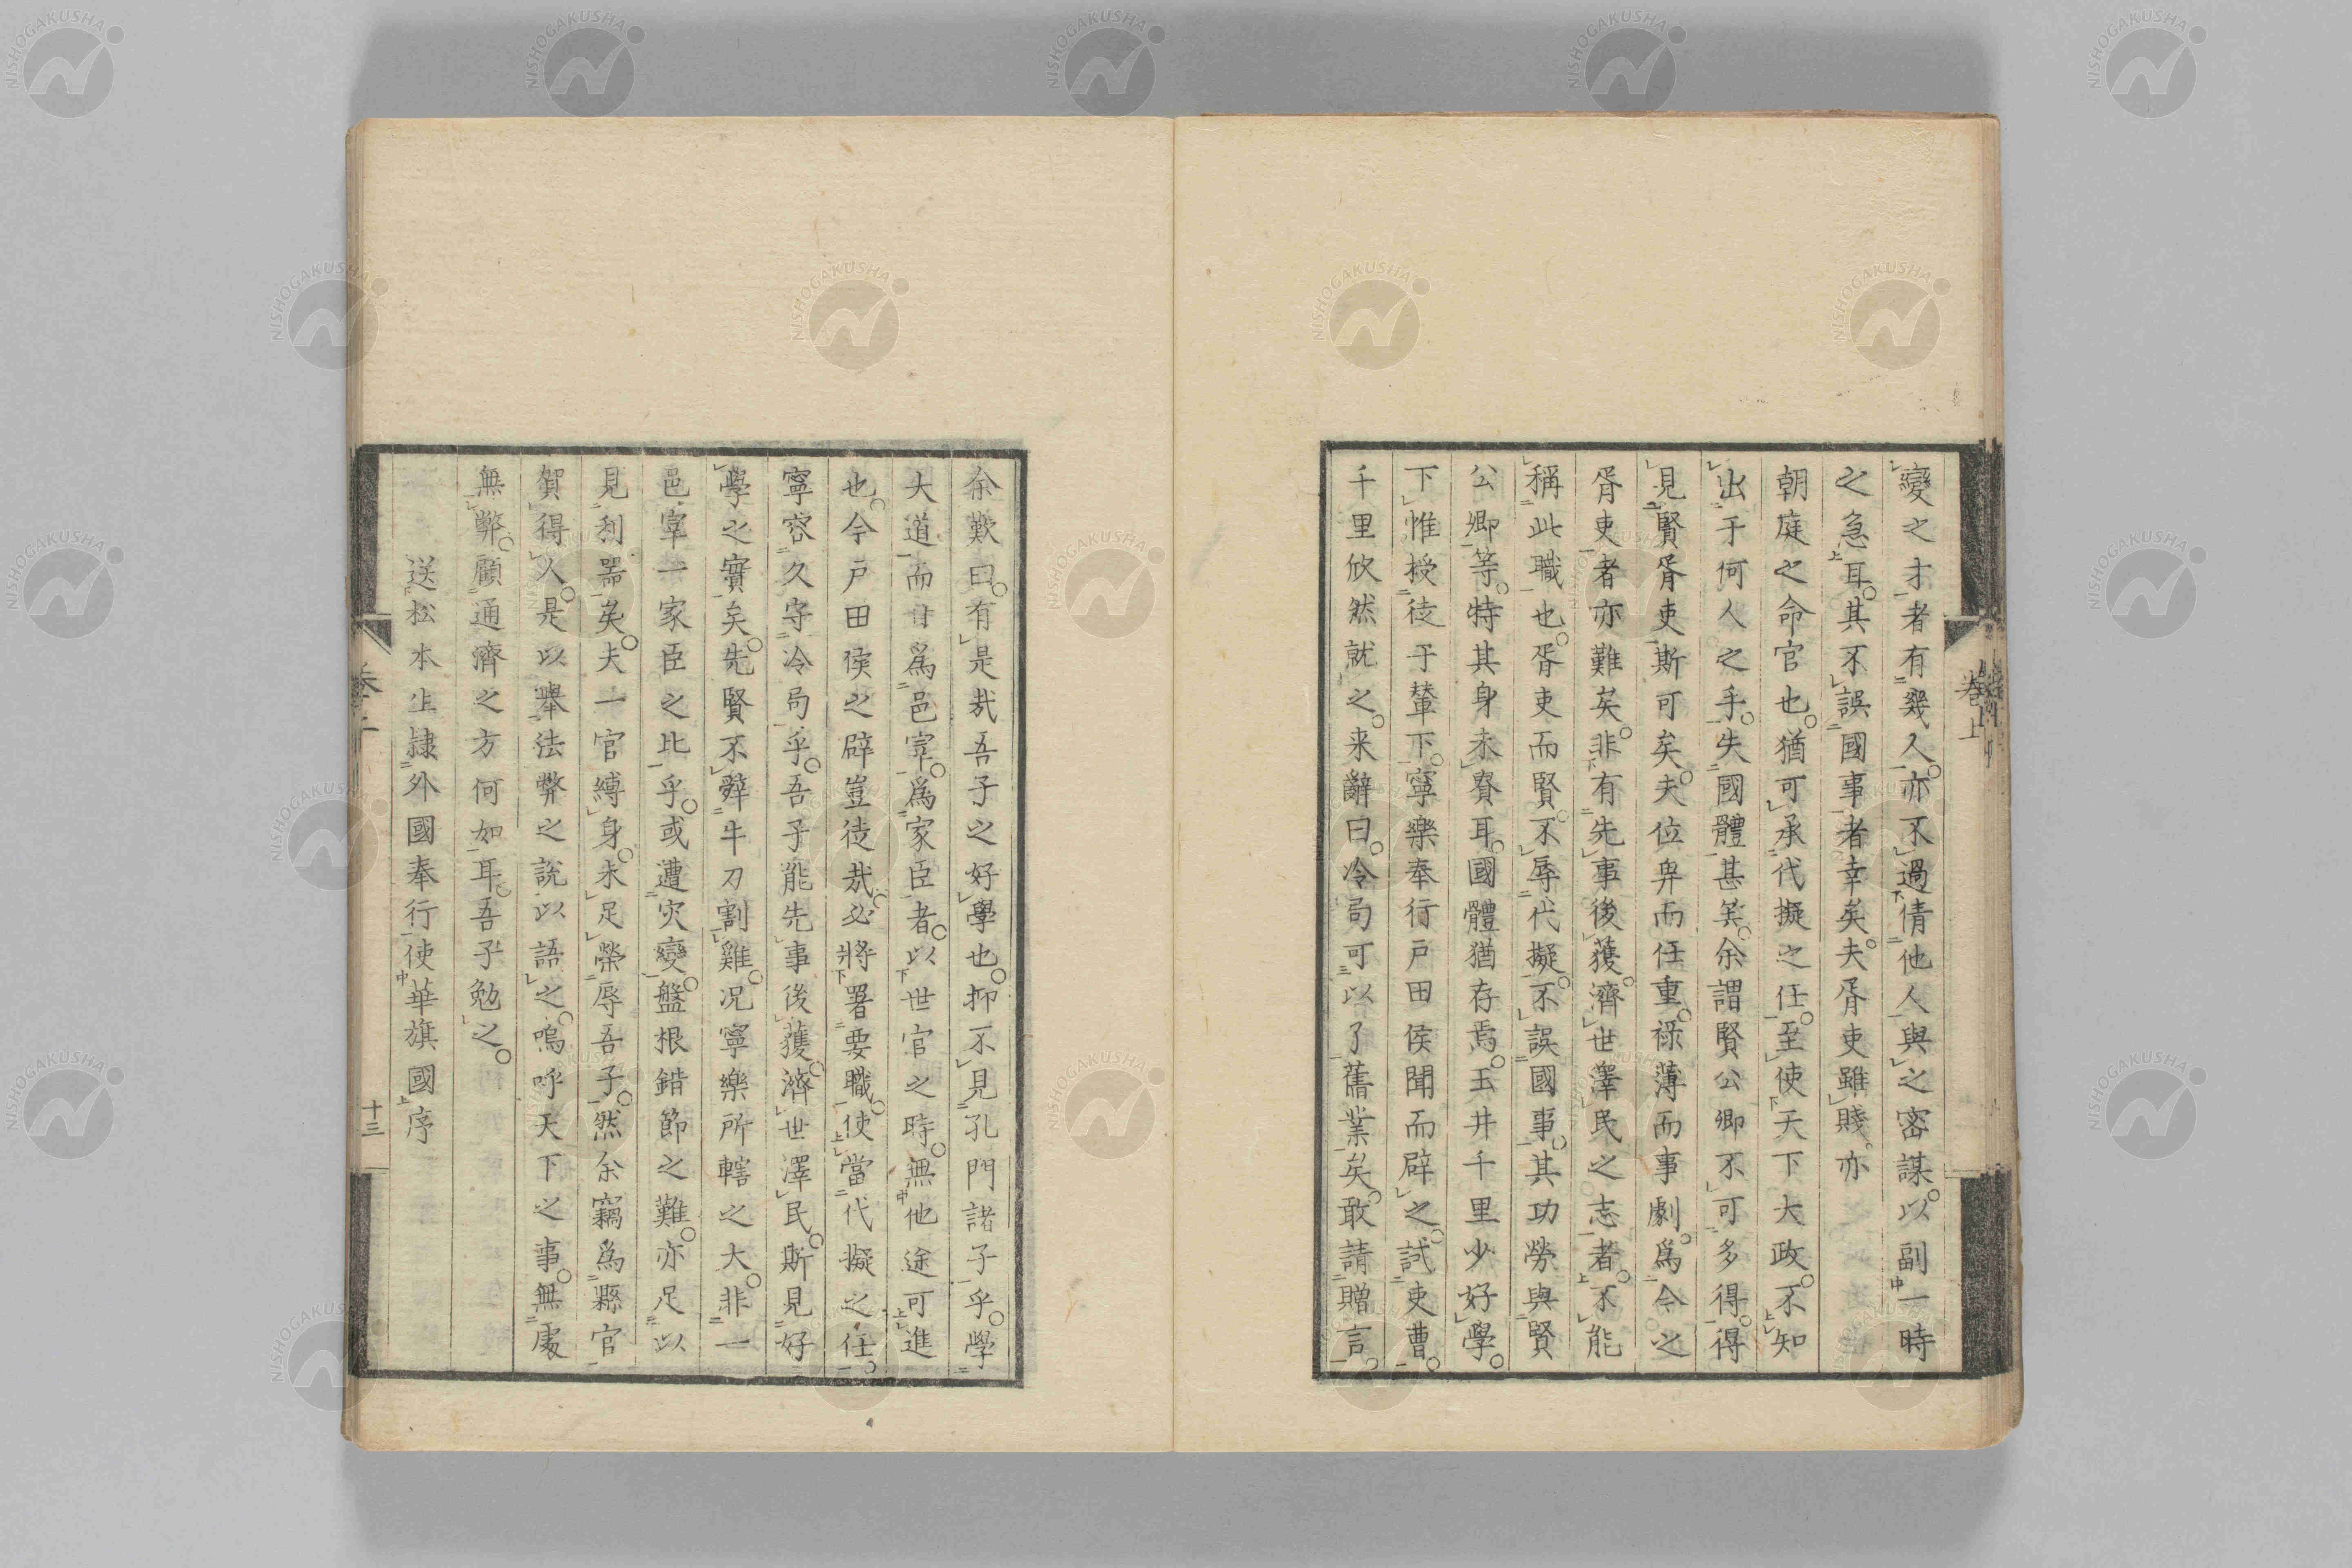 變之才者有幾人亦不過倩他人與之密謀以副一時
之急耳其不誤國事者幸矣夫胥吏雖賤亦
朝庭之命官也猶可承代擬之任至使天下大政不知
出于何人之手失國體甚矣余謂賢公卿不可多得得
見賢胥吏斯可矣夫位卑而任重祿薄而事劇爲今之
胥吏者亦難矣非有先事後獲濟世澤民之志者不能
稱此職也胥吏而賢不辱代擬不誤國事其功勞與賢
公卿等特其身未賚耳國體猶存焉玉井千里少好學
下惟授徒于輦下寧樂奉行戸田侯聞而辟之試吏曹
千里欣然就之来辭曰冷局可以了舊業矣敢請贈言
卷上
余歎曰有是哉吾子之好學也抑不見孔門諸子乎學
大道而甘爲邑宰爲家臣者以世官之時無他途可進
也今戸田侯之辟豈徒哉必將署要職使當代擬之任
寧容久守冷局乎吾子能先事後獲濟世澤民斯見好
學之實矣先賢不辭牛刀割雞况寧樂所轄之大非一
邑宰一家臣之比乎或遭灾變盤根錯節之難亦足以
見利器矣夫一官縛身未足榮辱吾子然余竊爲縣官
賀得人是以舉法弊之説以語之嗚呼天下之事無處
無弊顧通濟之方何如耳吾子勉之
送松本生隷外國奉行使華旗國序
十三
NISHOGAKUSHA